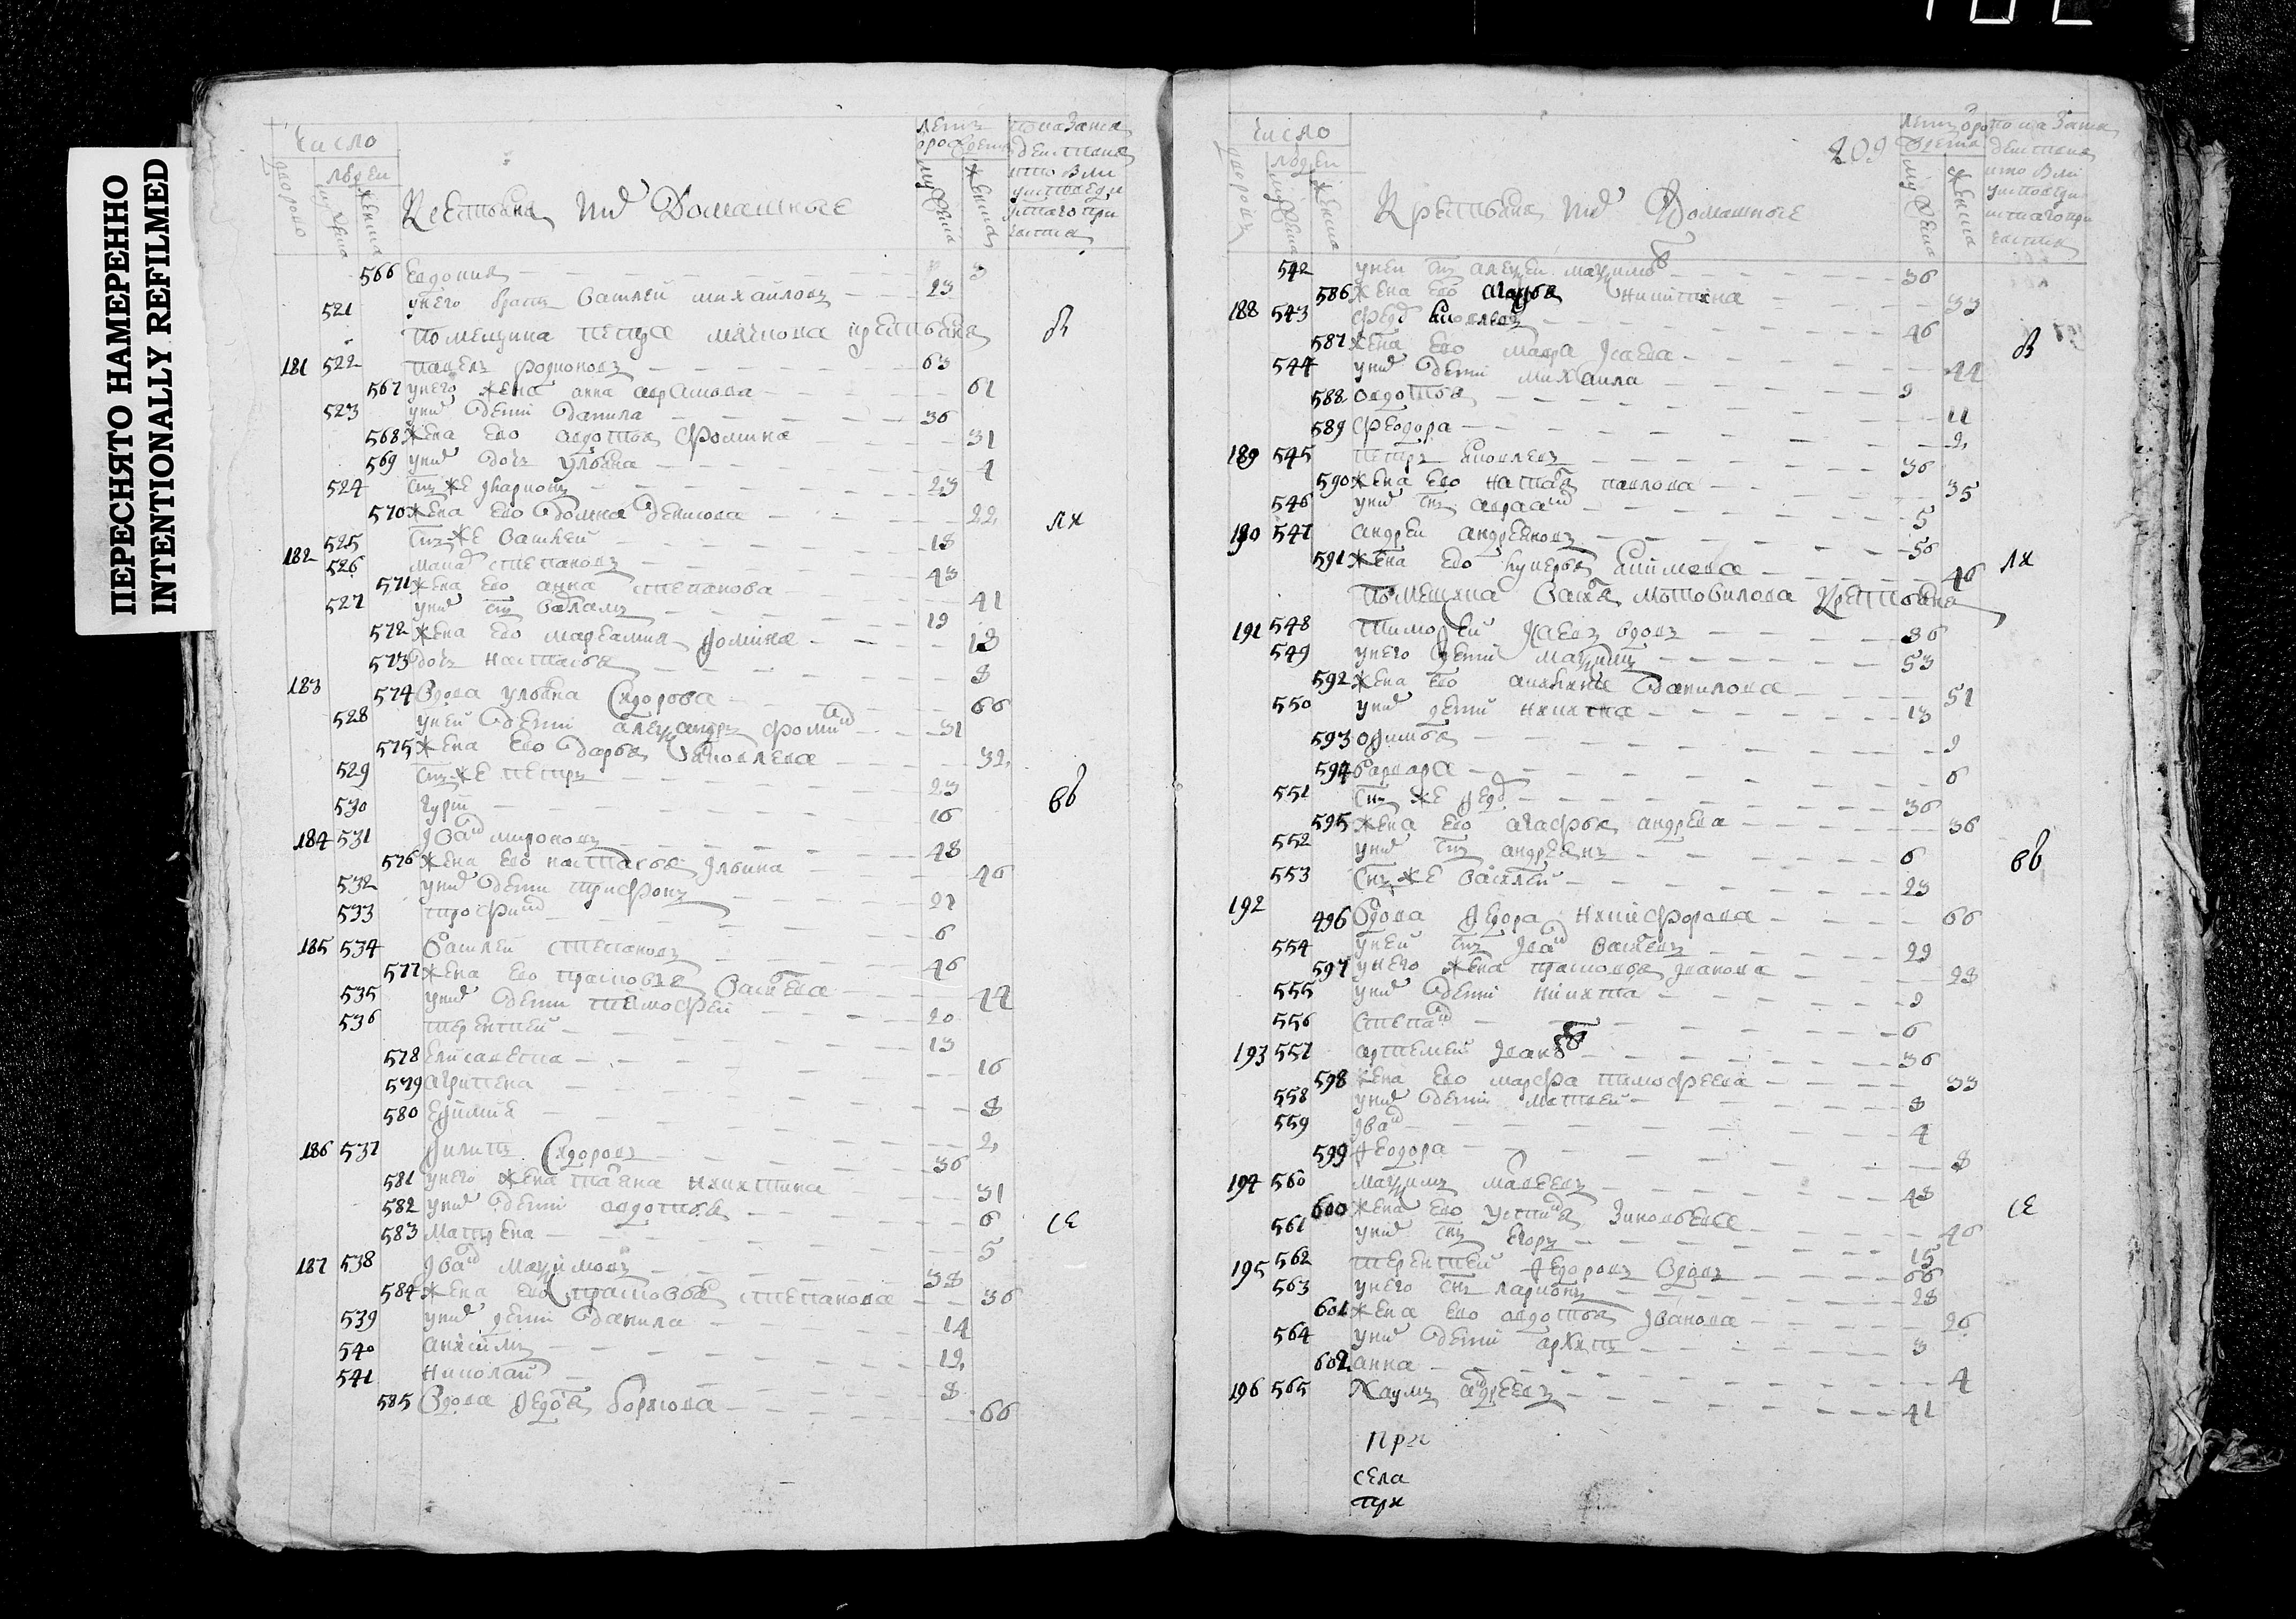 ПЕРЕСНЯТО НАМЕРЕННО
INTENTIONALLY REFILMED
число
людеи
Крестьяна и их Домашные
566 Евдокия 9
521 у него братъ Василеи михаиловъ 23
Помещика Петра крестьяна
181 522 павелъ родионовъ 63
567 у него жена анна аврамова 61
523 у них дети Данила 36
568 жена ево авдотья Фомина 31
569 у них дочь ульяна 4
524 сынъ же иларионъ 23
570 жена ево Домна Денисова 22
525 сынъ же Василеи 18
182 526 степановъ 43
571 жена ево анна степанова 41
527 у них сынъ 19
572 жена ево Фомина 19
573 дочь настасья 8
183 574 Вдова ульяна Сидорова 66
528 у неи дети александръ фомин 31
575 жена ево дарья яковлева 32
529 сынъ же петръ 23
530 гурiи 16
184 531 Иванъ мироновъ 48
576 жена ево настасья Ильина 46
532 у них дети трифонъ 27
533 трофим 6
185 534 Василеи степановъ 46
577 жена ево прасковья Васильева 44
535 у них дети тимофеи 20
536 терентеи 13
578 Елисавета 16
579 агрипена 8
580 Ефимия 2
186 537 Филипъ Сидоровъ 36
581 у него жена татьяна никитина 31
582 у них дети авдотья 6
583 Матрена 5
187 538 Иванъ Максимовъ 38
584 жена ево прасковья степанова 36
539 у них дети данила 14
540 анисимъ 12
541 николаи 8
585 Вдова Федосья борисова 66
вв
се
209
число
людеи
Крестьяна и их Домашные
542 у неи сынъ алексеи максимов 36
586 жена ево агафья никитина 33
188 543 Федор яковлевъ 46
587 жена ево мавра Исаева 44
544 у них дети михаила 9
588 авдотья 11
589 Феодора 2
189 545 петръ яковлевъ 36
590 жена ево наталья павлова 35
546 у них сынъ авраам 5
190 547 андреи андреяновъ 56
591 жена ево лукерья 46
Помещика Василья Мотовилова Крестьяна
191 548 Тимофеи Исаевъ вдовъ 86
549 у него дети максимъ 53
592 жена ево Данилова 51
550 у них дети никита 13
593 офимья 9
594 варвара 6
551 сынъ же Федор 36
595 жена ево агафья андреева 36
552 у них сынъ андреянъ 6
553 сынъ же Василеи 23
192 496 Вдова Федора никифорова 66
554 у неи сынъ Иван Васильевъ 29
597 у него жена прасковья Иванова 28
555 у них дети никита 9
556 степан 6
193 557 артемеи Иванов 36
598 жена ево марфа тимофеева 33
558 у них дети матвеи 8
559 Иван 4
599 Феодора 8
194 560 максимъ матвеевъ 48
600 жена ево устинья Зиновьева 46
561 у них сынъ егоръ 15
195 562 терентеи Федоровъ Вдовъ 66
563 у него сынъ ларионъ 28
601 жена ево авдотья Иванова 26
564 у них дети архипъ 3
602 анна 4
196 565 Наумъ андреевъ 41
вв
се
При
села
при